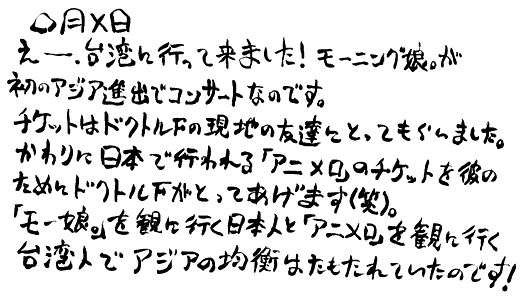 ○月×日
えー、台湾に行って来ました！モーニング娘。が
初のアジア進出でコンサートなのです。
チケットはドクトルFの現地の友達にとってもらいました。
かわりに日本で行われる「アニメロ」のチケットを彼の
ためにドクトルFがとってあげます(笑)。
「モー娘。」を観に行く日本人と「アニメロ」を観に行く
台湾人でアジアの均衡はたもたれていたのです！